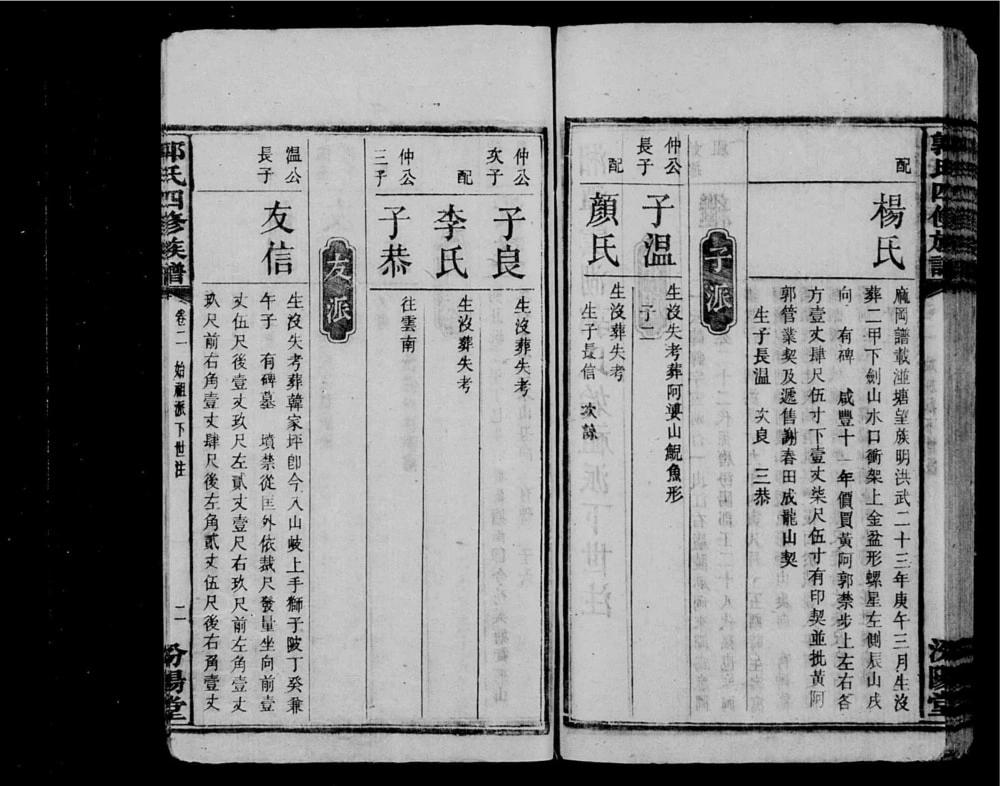 郭氏四修族譜
汾陽堂
配
楊氏
龐岡譜載湴塘望族明洪武二十三年庚午三月生沒
葬二甲下劍山水口衝架上金盆形螺星左側辰山戌
向 有碑 咸豐十一年價買黃阿郭禁步上左右各
方壹丈肆尺伍寸下壹丈柒尺伍寸有印契並批黃阿
郭管業契及遞售謝春田成龍山契
生子長温 次良 三恭
子派
仲公
長子
子温
生沒失考葬阿婆山鯢魚形
子二
配
顏氏
生沒葬失考
生子長信 次諒
仲公
次子
子良
生沒葬失考
配
李氏
生沒葬失考
仲公
三子
子恭
往雲南
友派
温公
長子
友信
生沒失考葬韓家坪卽今入山岐上手獅子陂丁癸兼
午子 有碑墓 墳禁從匡外依裁尺發量坐向前壹
丈伍尺後壹丈玖尺左貳丈壹尺右玖尺前左角壹丈
玖尺前右角壹丈肆尺後左角貳丈伍尺後右角壹丈
郭氏四修族譜
卷二 始祖派下世注
二
汾陽堂